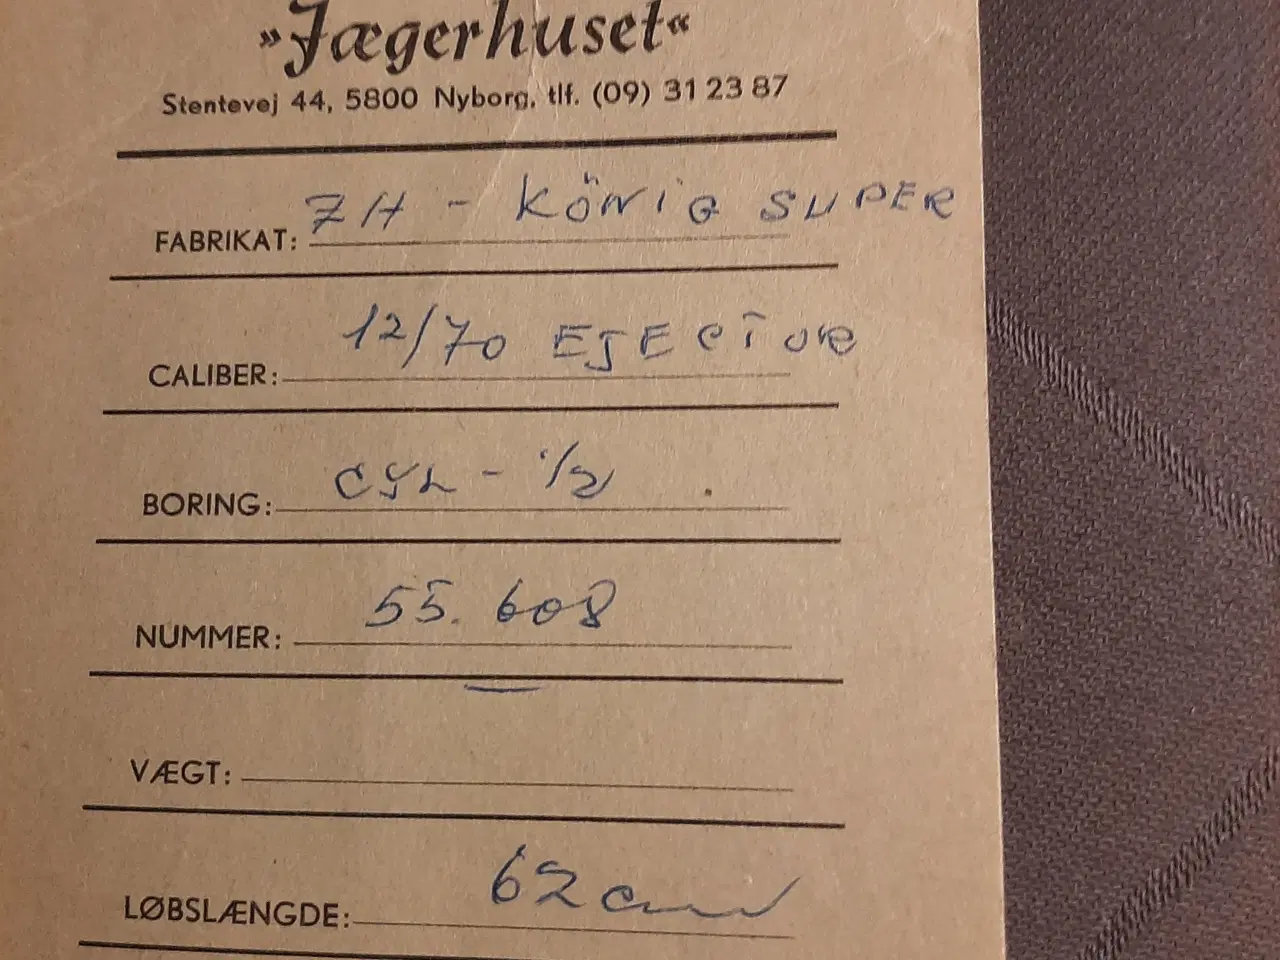 »Jægerhuset«
Stentevej 44, 5800 Nyborg, tlf. (09) 31 23 87
FABRIKAT: ZH - König SUPER
CALIBER: 12/70 EJECTOR
BORING: CYL - 1/2
NUMMER: 55.608
VÆGT:
LØBSLÆNGDE: 62 cm